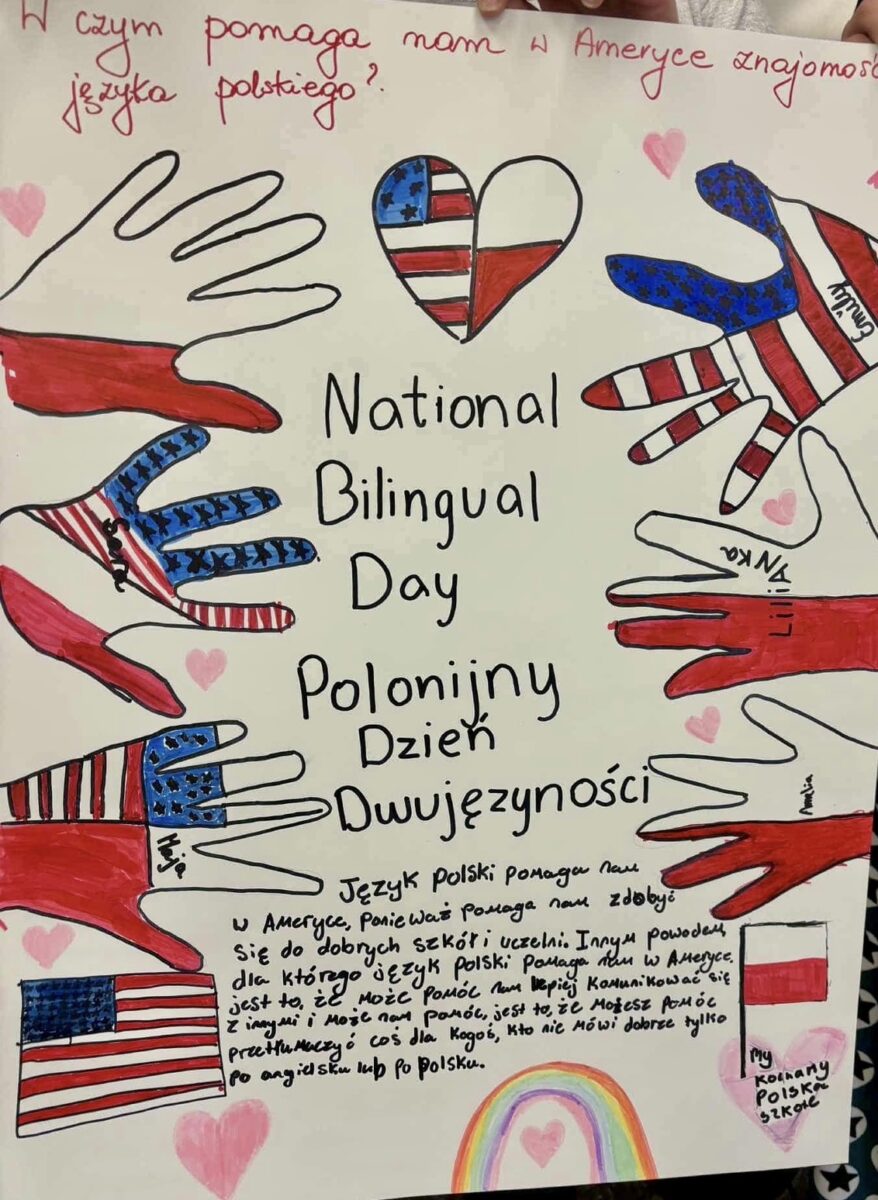 W czym pomaga nam w Ameryce znajomość
języka polskiego?
Emily
National
Bilingual
Day
Sara
LilliANKA
Polonijny
Dzień
Dwujęzyności
Maja
Amelia
Język Polski pomaga nam
w Ameryce, ponieważ pomaga nam zdobyć
się do dobrych szkół i uczelni. Innym powodem,
dla którego język Polski pomaga nam w Ameryce,
jest to, że może pomóc nam lepiej komunikować się
z innymi i może nam pomóc, jest to, że możesz pomóc
przetłumaczyć coś dla kogoś, kto nie mówi dobrze tylko
po angielsku lub po polsku.
My
kochamy
Polską
szkołe